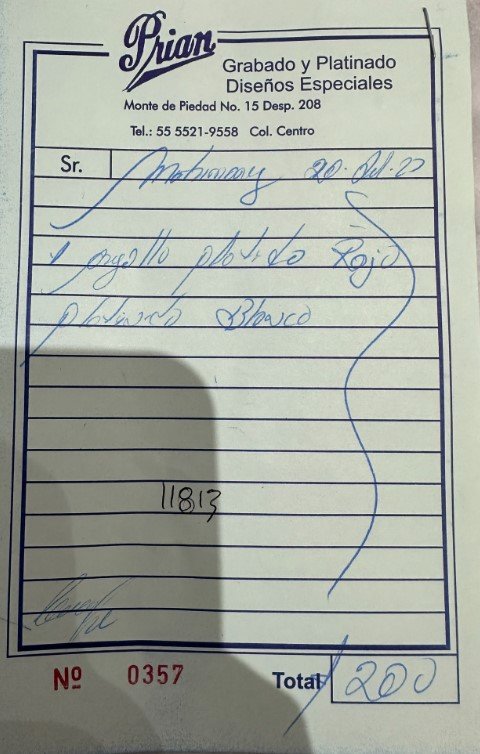 Prian
Grabado y Platinado
Diseños Especiales
Monte de Piedad No. 15 Desp. 208
Tel.: 55 5521-9558 Col. Centro
Sr. 20
1 Rojo
Blanco
11813
Nº 0357
Total 200